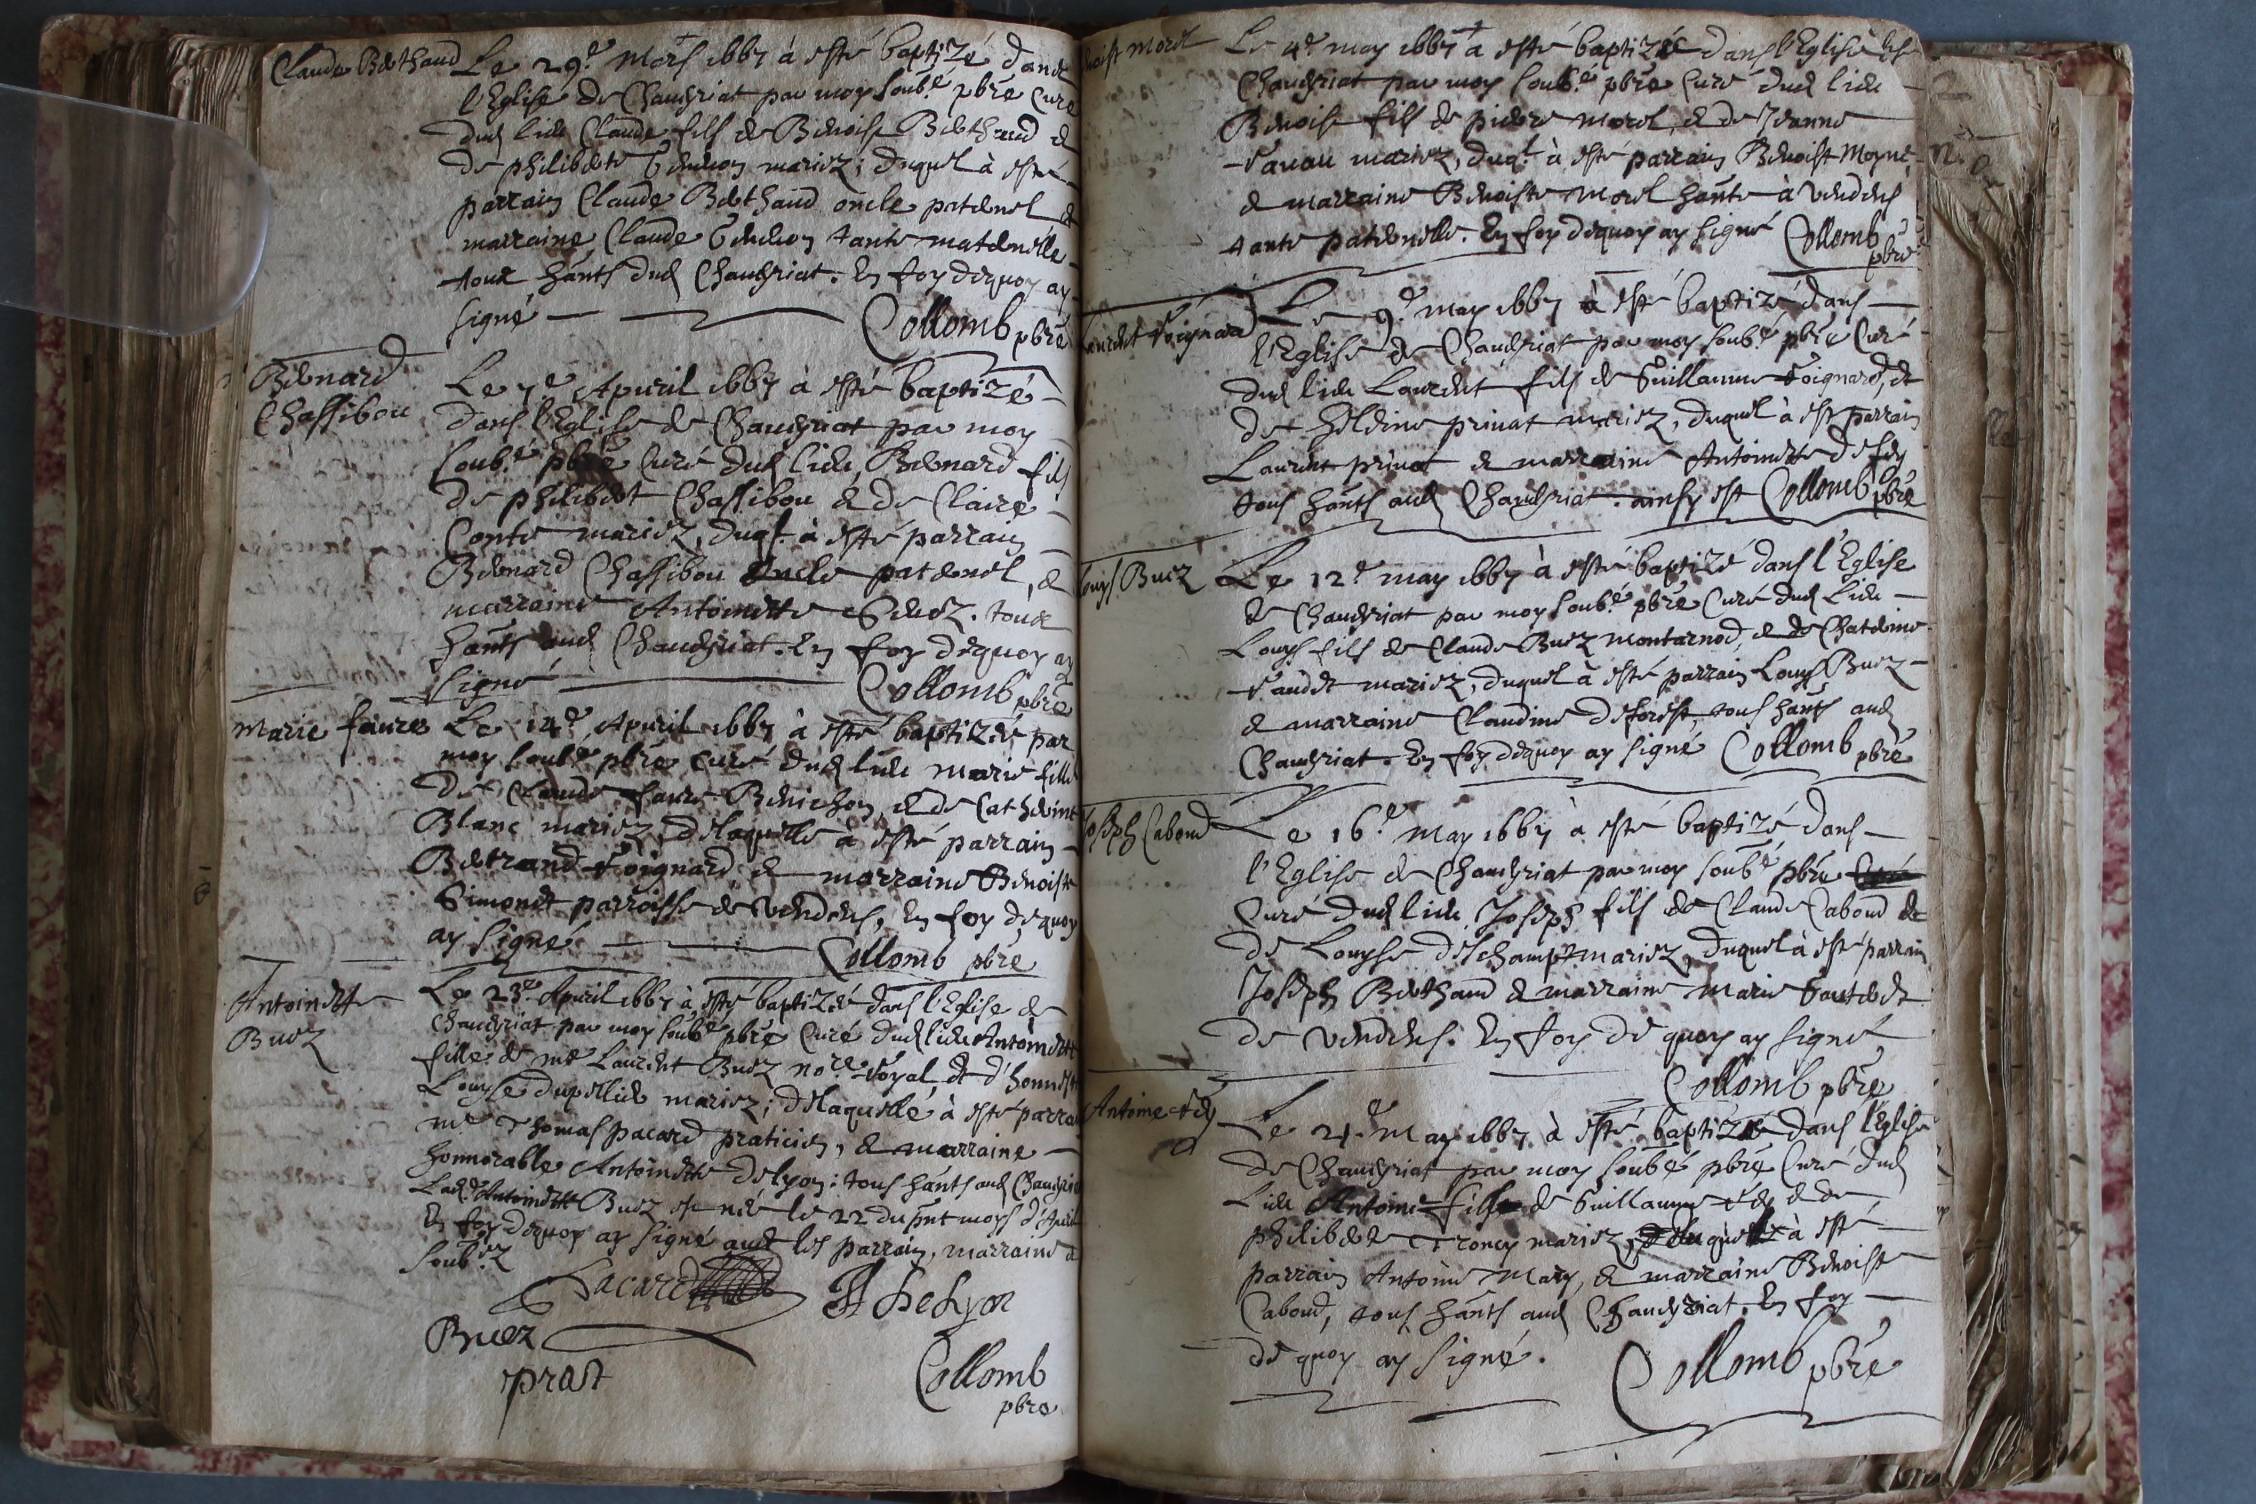 Claude Berthaud
Le 29e Mars 1667 à esté baptizé dans
l'Eglise de Chaveyriat par moy soubé pbre Curé
dud lieu Claude fils de Benoist Berthaud &
de philiberte mariez; duquel à esté
parrain Claude Berthaud oncle paternel &
marraine Claude tante maternelle
tous hants dud Chaveyriat. En foy dequoy ay
signé Collomb pbre
Bernard
Chassibou
Le 7e Apuril 1667 à esté baptizé
dans l'Eglise de Chaveyriat par moy
soubé pbre Curé dud lieu, Bernard fils
de philibert Chassibou & de Claire
Conte mariez, duqt à esté parrain
Bernard Chassibou oncle paternel, &
marraine Antoinette tous
hants aud Chaveyriat. En foy dequoy ay
signé Collomb pbre
Marie faure
Le 14e Apuril 1667 à esté baptizée par
moy soubé pbre Curé dud lieu Marie fille
de Claude faure Benichon, & de Catherine
Blanc mariez, delaquelle à esté parrain
Bertrand Foignard & marraine Benoiste
Simonet parroisse de Vendens, En foy dequoy
ay signé Collomb pbre
Antoinette
Buez
Le 23e Apuril 1667 à esté baptizée dans l'Eglise de
Chaveyriat par moy soubé pbre Curé dud lieu Antoinette
fille de me Laurent Buez nore Royal, & d'honneste
Louyse dupellier mariez; delaquelle à esté parrain
me Thomas pacard praticien, & marraine
honnorable Antoinette delyon: tous hants aud Chaveyriat
Lade Antoinette Buez est née le 22 du pnt moys d'Apuril
En foy dequoy ay signé auec les parrain, marraine &
soubez
Pacard A Delyon
Buez
prast
Collomb
pbre
Benoist Morel
Le 4e may 1667 à esté baptizé dans l'Eglise de
Chaveyriat par moy soubé pbre Curé dud lieu
Benoist fils de pierre Morel, & de Jeanne
mariez, duqt à esté parrain Benoist Moyne
& marraine Benoiste Morel hante à Vendens
tante paternelle. En foy dequoy ay signé Collomb
pbre
Laurent Foignard
Le 9e may 1667 à esté baptizé dans
l'Eglise de Chaveyriat par moy soubé pbre Curé
dud lieu Laurent fils de Guillaume Foignard, &
de priuat mariez, duquel à est parrain
Laurent priuat & marraine Antoinette
tous hants aud Chaveyriat. ainsy est Collomb pbre
Louys Buez
Le 12e may 1667 à esté baptizé dans l'Eglise
de Chaveyriat par moy soubé pbre Curé dud lieu
Louys fils de Claude Buez montarnod, & de Catherine
mariez, duquel à esté parrain Louys Buez
& marraine Claudine deforest, tous hants aud
Chaveyriat. En foy dequoy ay signé Collomb pbre
Joseph Caboud
Le 16e May 1667 à esté baptizé dans
l'Eglise de Chaveyriat par moy soubé pbre
Curé dud lieu Joseph fils de Claude Caboud &
de Louyse deschamps mariez, duquel à esté parrain
Joseph Berthaud & marraine Marie
de Vendens. En foy de quoy ay signé
Collomb pbre
Antoine
Le 21e May 1667 à esté baptizé dans l'Eglise
de Chaveyriat par moy soubé pbre Curé dud
Lieu Antoine fils de Guillaume & de
philiberte Troncy mariez, duquel à esté
parrain Antoine Mary, & marraine Benoiste
Caboud, tous hants aud Chaveyriat. En foy
de quoy ay signé.
Collomb pbre